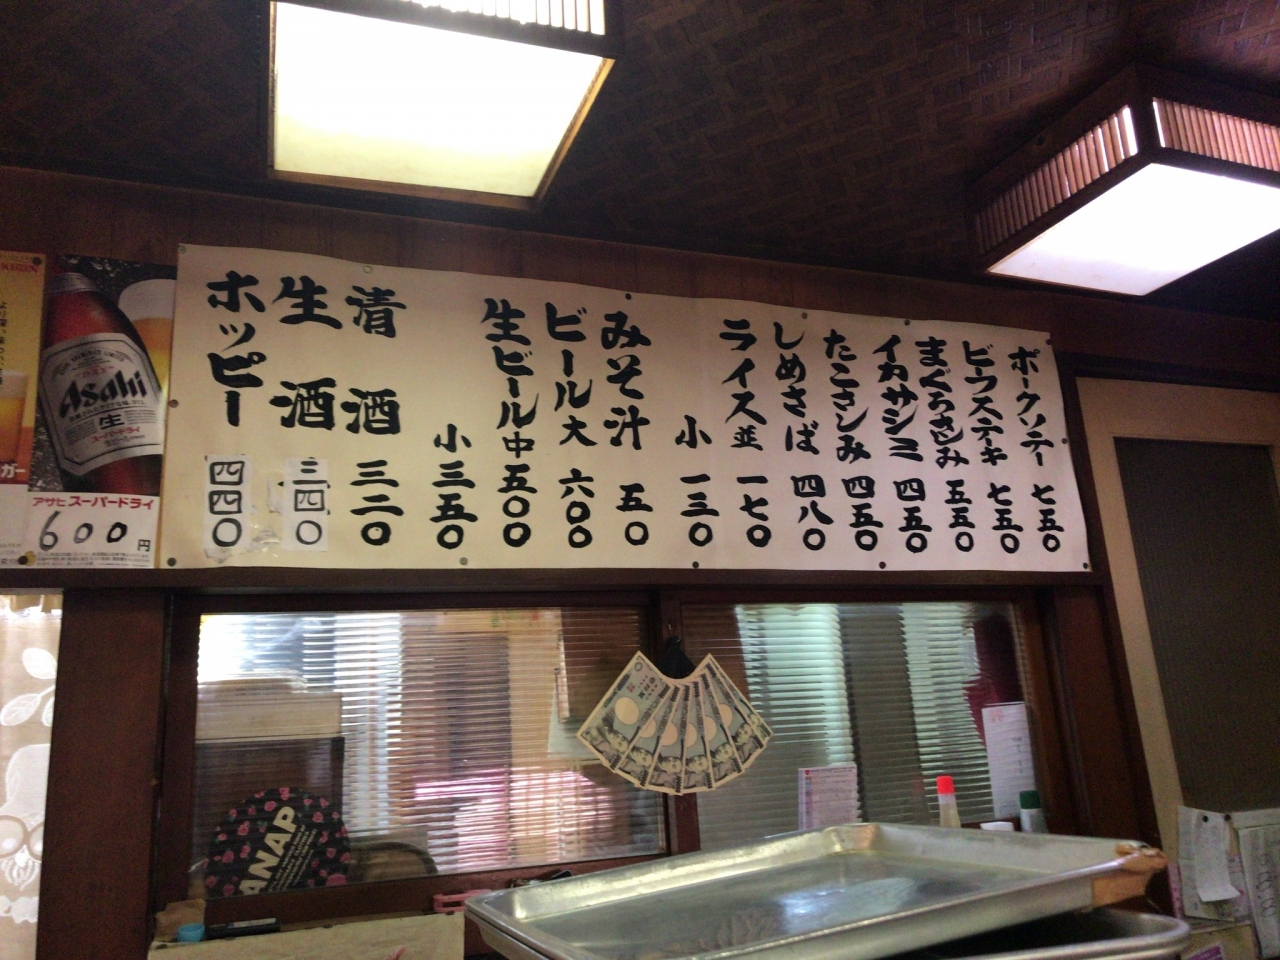 ポークソテー 七五〇
ビーフステキ 七五〇
まぐろさしみ 五五〇
イカサシミ 四五〇
たこさしみ 四五〇
しめさば 四八〇
ライス並 一七〇
小 一三〇
みそ汁 五〇
ビール大 六〇〇
生ビール中 五〇〇
小 三五〇
清酒 三二〇
生酒 三四〇
ホッピー 四四〇
Asahi
生
アサヒ スーパードライ
600円
KIRIN
ANAP